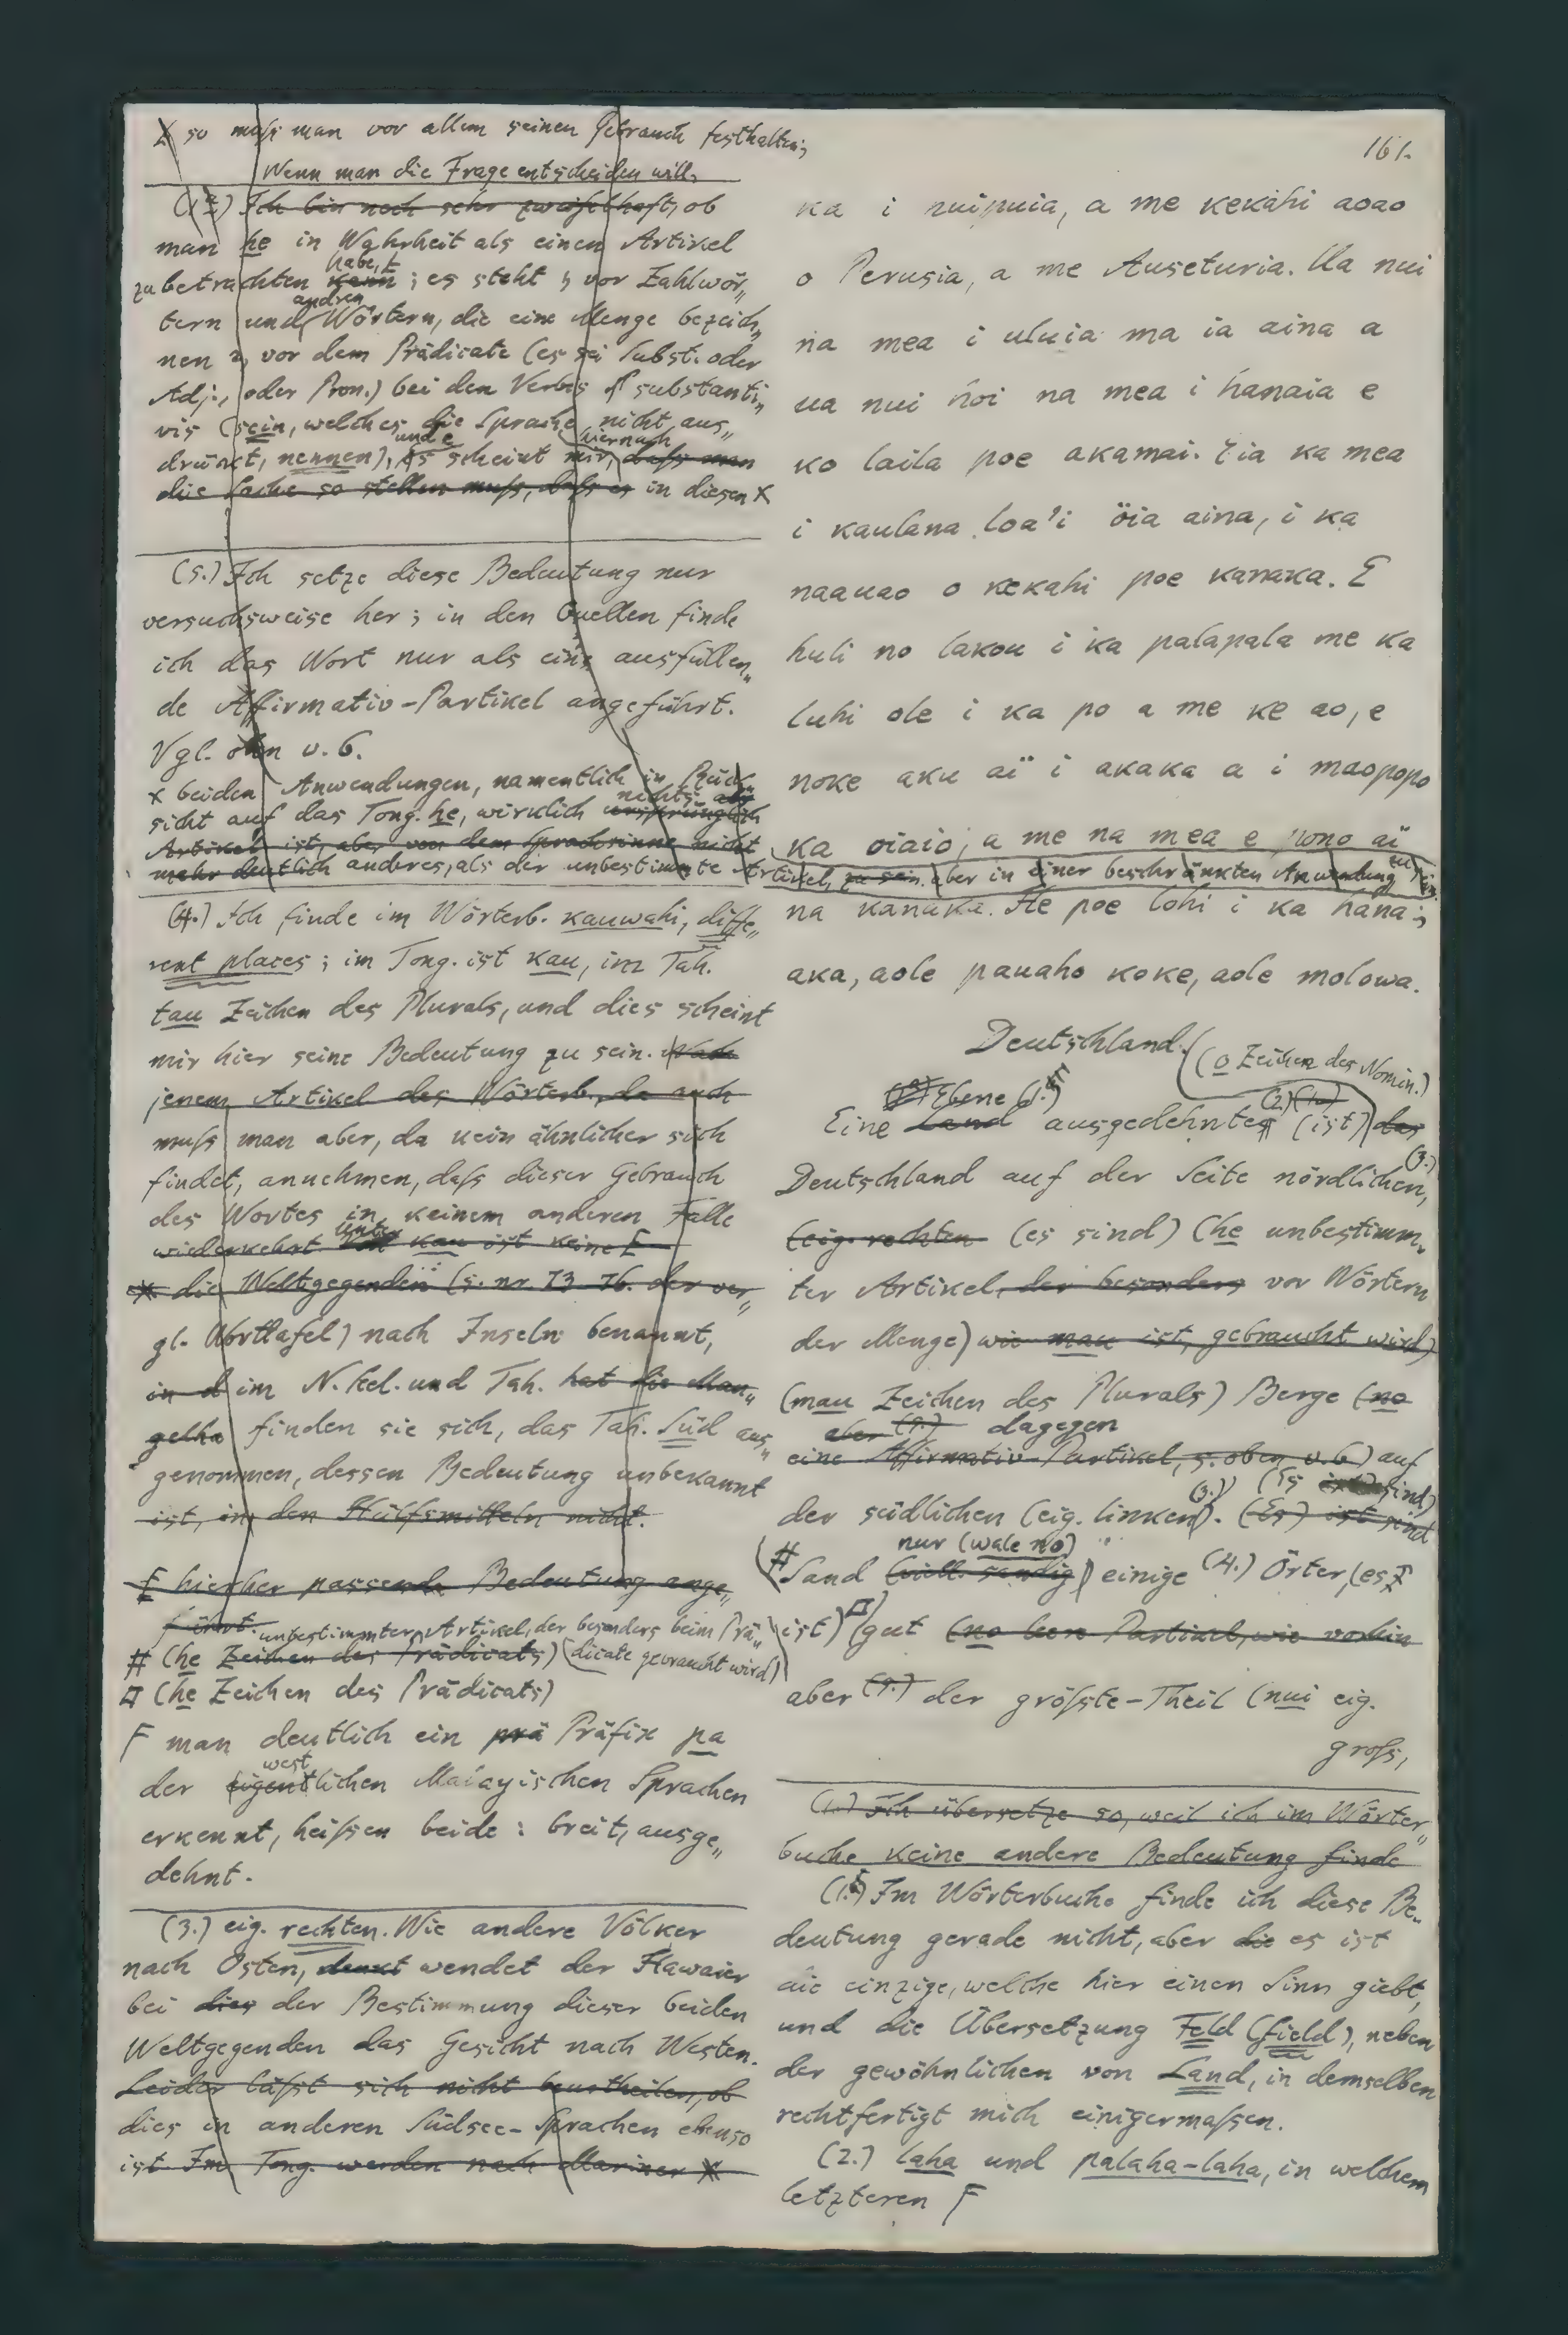 X so muſs man vor allem seinen Gebrauch festhalten;
Wenn man die Frage entscheiden will,
Ich bin noch sehr zweifelhaft, ob
man he in Wahrheit als einen Artikel
habe,
zu betrachten kann; es steht 1, vor Zahlwör„
andren
tern und Wörtern, die eine Menge bezeich„
nen 2, vor dem Prädicate (es sei Subst. oder
Adj., oder Pron.) bei den Verbis substanti„
vis (sein, welches die Sprache nicht aus„
und e hiernach
drückt, nennen), Es scheint mir, daſs man
die Sache so stellen muſs, daſs es in diesen X
(5.) Ich setze diese Bedeutung nur
versuchsweise her; in den Quellen finde
ich das Wort nur als eine ausfüllen„
de Affirmativ-Partikel angeführt.
Vgl. oben v. 6.
X beiden Anwendungen, namentlich in Rück„
nichts
sicht auf das Tong. he, wirklich ursprünglich
Artikel ist, aber von dem Sprachsinne nicht
mehr deutlich anderes, als der unbestimmte Artikel, zu sein. aber in einer beschränkten Anwendung
(4.) Ich finde im Wörterb. kauwahi, diffe„
rent places; im Tong. ist kau, im Tah.
tau Zeichen des Plurals, und dies scheint
mir hier seine Bedeutung zu sein. Nach
jenem Artikel des Wörterb., da auch
muſs man aber, da kein ähnlicher sich
findet, annehmen, daſs dieser Gebrauch
des Wortes in keinem anderen Falle
Unter
wiederkehrt. kau ist keine E
X die Weltgegenden (s. nr. 73-76. der ver„
gl. Worttafel) nach Inseln benannt,
in d im N. Sel. und Tah. hat die Man„
gelha finden sie sich, das Tah. Süd aus„
genommen, dessen Bedeutung unbekannt
ist, in den Hülfsmitteln nicht.
E hierher passende Bedeutung ange„
führt. unbestimmter Artikel, der besonders beim Prä„
# (he Zeichen des Prädicats) (dicate gebraucht wird)
(he Zeichen des Prädicats)
F man deutlich ein prä Präfix pa
west
der eigentlichen Malayischen Sprachen
erkennt, heiſsen beide: breit, ausge„
dehnt.
(3.) eig. rechten. Wie andere Völker
nach Osten, denkt wendet der Hawaier
bei dies der Bestimmung dieser beiden
Weltgegenden das Gesicht nach Westen.
Leider läſst sich nicht beurtheilen, ob
dies in anderen Südsee-Sprachen ebenso
ist. Im Tong. werden nach Mariner X
161.
ka i nuipuia, a me kekahi aoao
o Perusia, a me Auseturia. Ua nui
na mea i uluia ma ia aina a
ua nui hoi na mea i hanaia e
ko laila poe akamai. Eia ka mea
i kaulana loa'i öia aina, i ka
naauao o kekahi poe kanaka. E
huli no lakou i ka palapala me ka
luhi ole i ka po a me ke ao, e
noke aku aï i akaka a i maopopo
ka oiaio, a me na mea e pono aï
na kanaka. He poe lohi i ka hana;
aka, aole pauaho koke, aole molowa.
Deutschland.
(o Zeichen des Nomin.)
Ebene (1.)
(2.)
Eine Land ausgedehnte (ist) das
(3.)
Deutschland auf der Seite nördlichen,
(eig. rechten (es sind) (he unbestimm„
ter Artikel, der besonders vor Wörtern
der Menge) wie mau ist, gebraucht wird)
(mau Zeichen des Plurals) Berge (no
aber dagegen
eine Affirmativ-Partikel, s. oben v. 6) auf
(3.) (Es sind)
der südlichen (eig. linken). (Es) ist sind
nur (wale no)
# Sand (viell. sandig) einige (4.) Örter, (es
ist) (gut (no leere Partikel, wie vorhin
aber der gröſste Theil (nui eig.
groſs,
(1.) Ich übersetze so, weil ich im Wörter„
buche keine andere Bedeutung finde
(1.) Im Wörterbuche finde ich diese Be„
deutung gerade nicht, aber die es ist
die einzige, welche hier einen Sinn giebt,
und die Übersetzung Feld (field), neben
der gewöhnlichen von Land, in demselben
rechtfertigt mich einigermaſsen.
(2.) laha und palaha-laha, in welchem
letzteren F